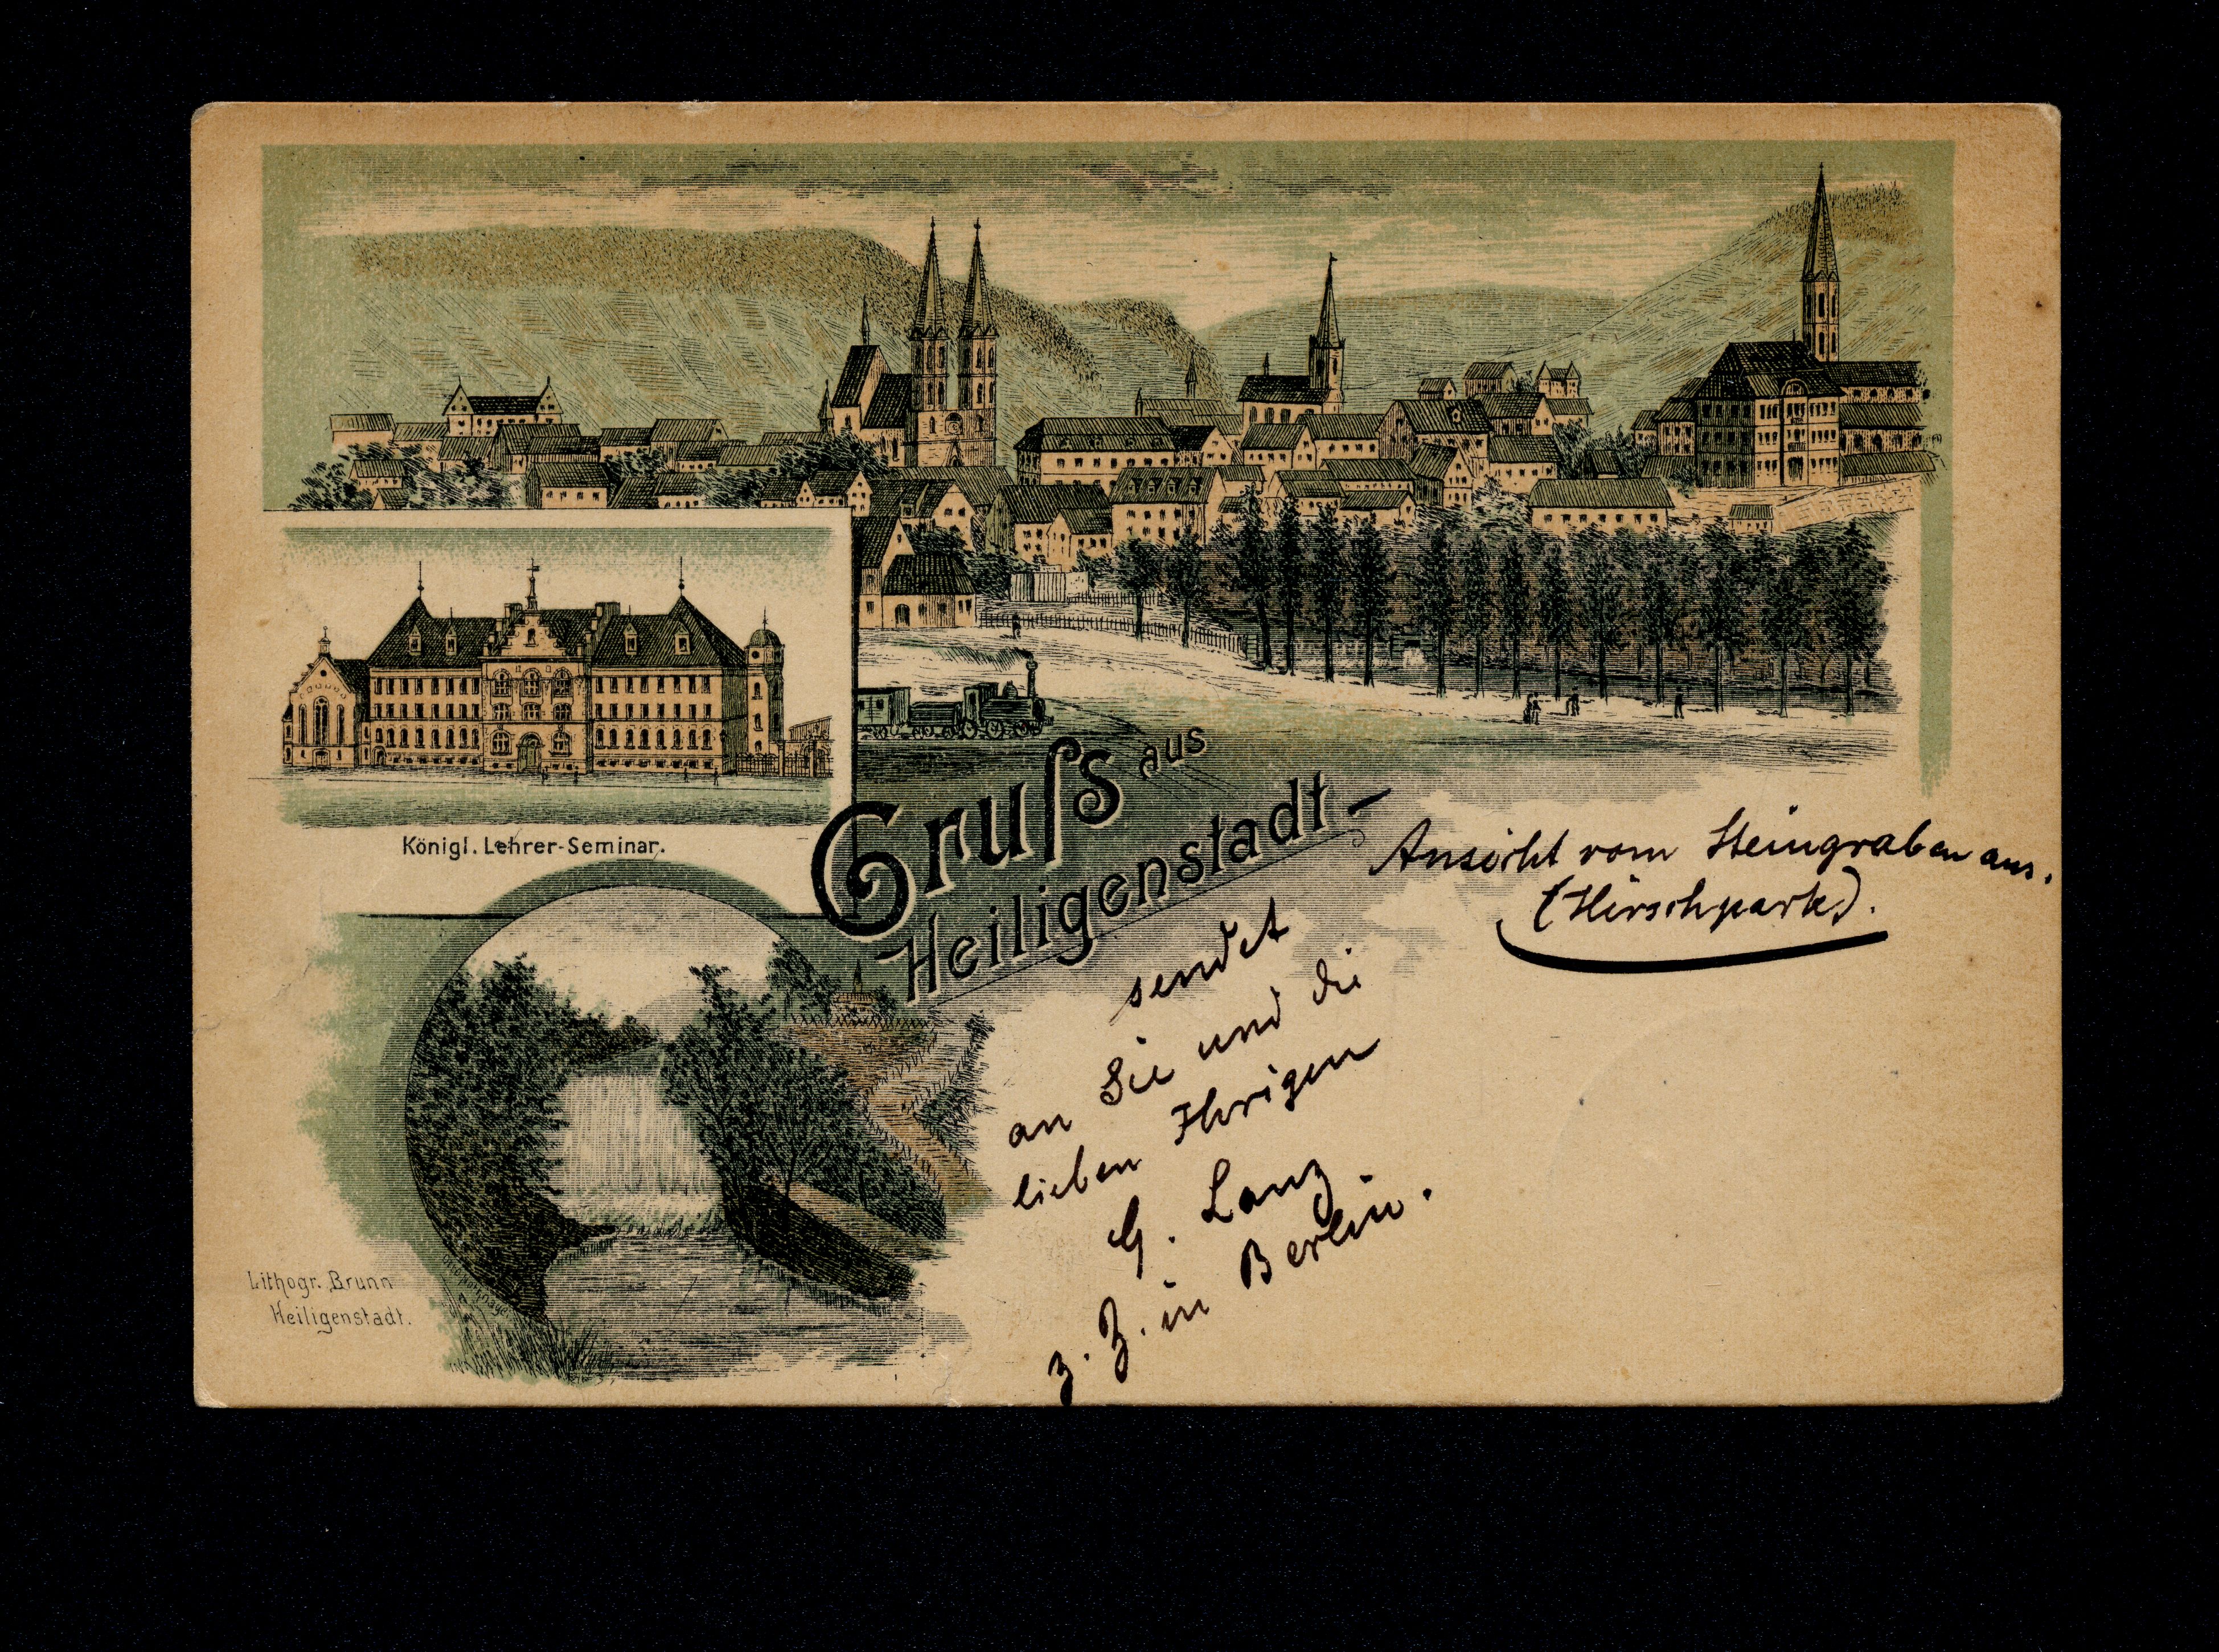 Königl. Lehrer-Seminar.
Gruſs aus
Heiligenstadt
Ansicht vom Steingraben aus.
(Hirschpark).
sendet
an Sie und die
lieben Ihrigen
G. Lanz
z. Z. in Berlin.
Lithogr. Brunn
Heiligenstadt.